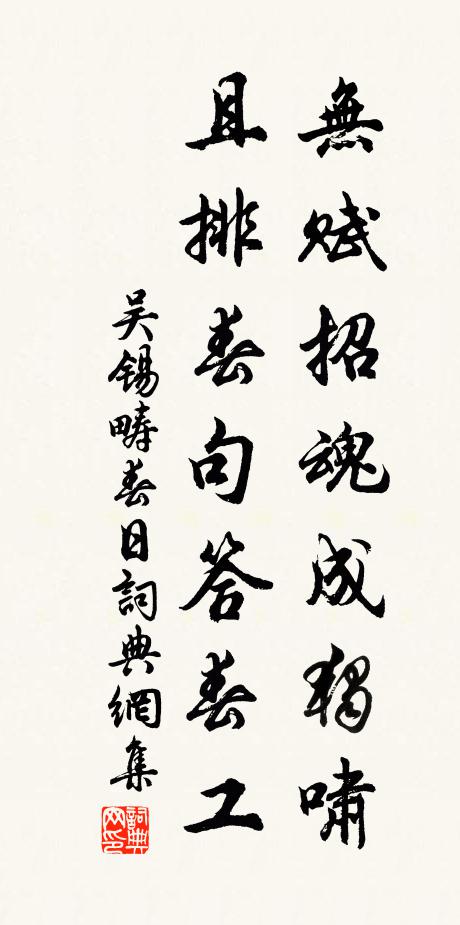 無賦招魂成獨嘯
且排春句答春工
吳錫疇春日詞典網集
詞典網印